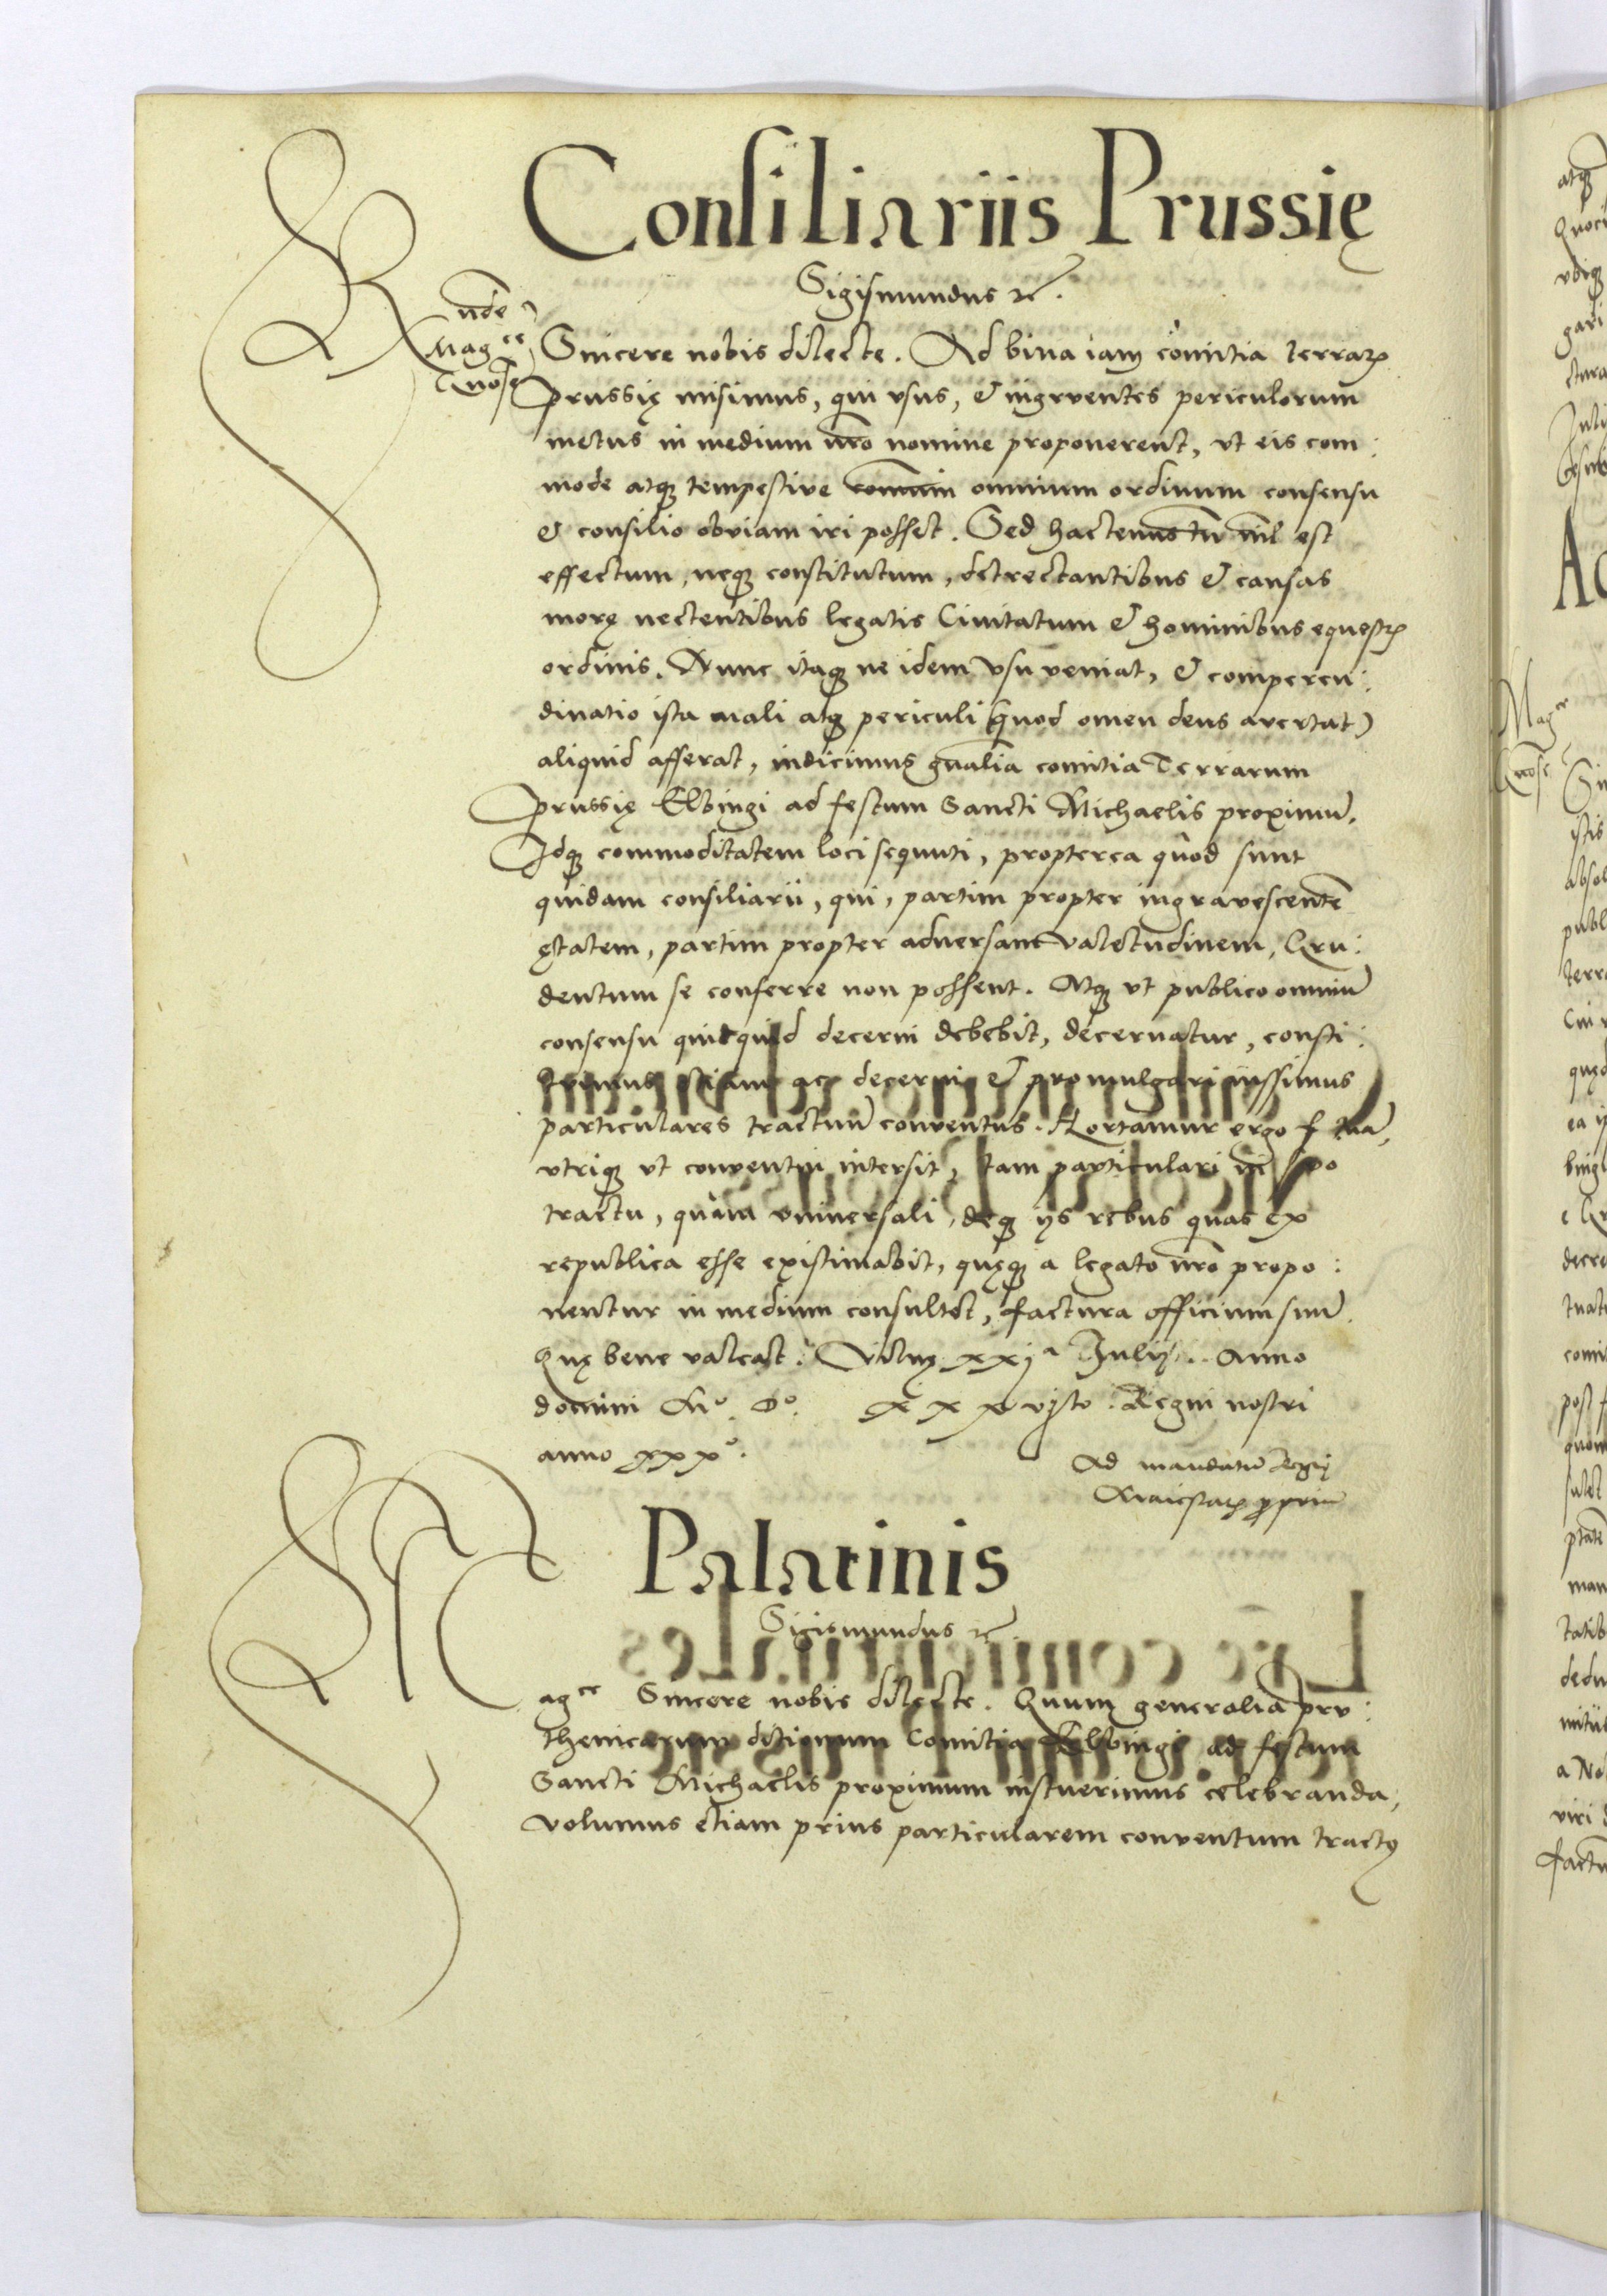 Consiliariis Prussię
Sigismundus rc̃.
Rnde
Magce
Gnose
Sincere nobis dilecte. Ad bina iam comitia terrarꝫ
Prussię misimus, qui usus, & ingruentes periculorum
metus in medium nr̃o nomine proponerent, ut eis com:
mode atqꝫ tempestive omnium ordinum consensu
& consilio obviam iri posset. Sed hactenus tñ nil est
effectum, neqꝫ constitutum, detrectantibus & causas
morę nectentibus legatis Civitatum & hominibus equestrꝫ
ordinis. Nunc itaqꝫ ne idem usu veniat, & comperen:
dinatio ista mali atqꝫ periculi (quod omen deus avertat)
aliquid afferat, indicimus gñalia comitia Terrarum
Prussię Elbingi ad festum Sancti Michaelis proximũ.
Idqꝫ commoditatem loci sequuti, propterea quòd sunt
quidam consiliarii, qui, partim propter ingravescentẽ
ętatem, partim propter adversam valetudinem, Gru:
dentum se conferre non possent. Atqꝫ ut publico omniũ
consensu quicquid decerni debebit, decernatur, consti:
tuimus etiam ac decerni & promulgari iussimus
particulares tractuũ conventus. Hortamur ergo f tuã,
utriqꝫ ut conventui intersit, tam particulari in suo
tractu, quàm universali, deqꝫ iis rebus quas ex
republica esse existimabit, quęqꝫ a legato nr̃o propo:
nentur in medium consultet, factura officium suũ.
Quę bene valeat. Vilnę xxja Julij. Anno
domini Mo. Do. xxxvjto. Regni nostri
anno xxxo.
Ad mandatũ Regię
Maiestatꝫ ꝓpriũ
Palatinis
Sigismundus rc̃.
Magce Sincere nobis dilecte. Quum generalia Pru:
thenicarum ditionum Comitia Elbingi ad festum
Sancti Michaelis proximum instituerimus celebranda,
volumus etiam prius particularem conventum tractꝯ